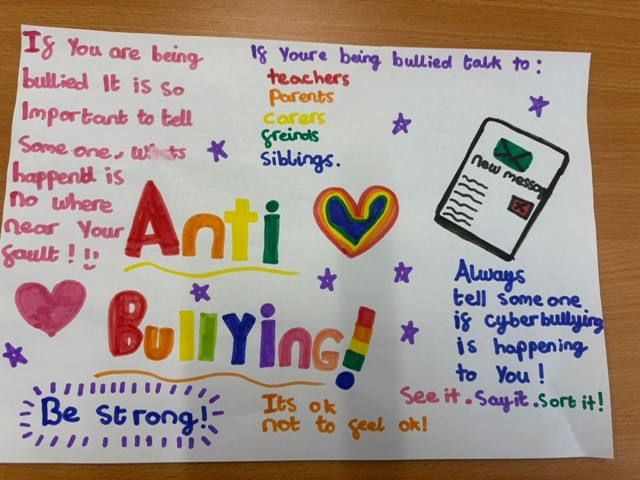 If You are being
bullied It is so
Important to tell
Some one, whats
happend is
No where
near Your
fault!
If Youre being bullied talk to:
teachers
Parents
carers
freinds
Siblings.
Anti
BullYing!
new messag
Always
tell some one
if cyberbullying
is happening
to You!
See it. Say it. Sort it!
Be strong!
Its ok
not to feel ok!